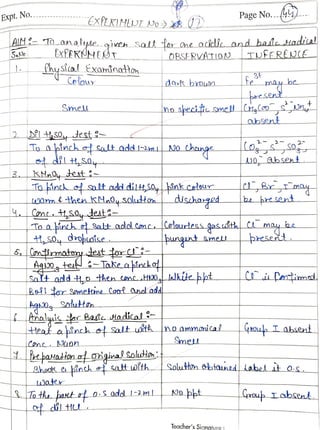 Expt. No.
Page No. 44
EXPERIMENT No > 17
AIM :- To analyse given salt for one acidic and basic Madical
S.No EXPERIMENT OBSERVATION INFERENCE
1. Physical Examination
Colour dark brown Fe3+ may be present
Smell no specific smell CH3COO-, S2-, NH4+ absent
2. Dil H2SO4 test :-
To a pinch of salt add 1-2ml of dil H2SO4. No change CO3 2-, S2-, SO3 2-, NO2- absent
3. KMnO4 test :-
To pinch of salt add dil H2SO4 warm & then KMnO4 solution pink colour discharged Cl-, Br-, I- may be present
4. Conc. H2SO4 test :-
To a pinch of salt add conc. H2SO4 dropwise. Colourless gas with pungent smell Cl- may be present.
5. Confirmatory test for Cl- :-
AgNO3 test :- Take a pinch of salt add H2O then conc. HNO3 Boil for sometime Cool and add AgNO3 solution White ppt Cl- is Confirmed.
6 Analysis for Basic Madical :-
Heat a pinch of salt with Conc. NaOH no ammonical Smell Group I absent
7 Preparation of original Solution:-
Shook a pinch of salt with water Solution obtained Label it O.S.
8 To the part of O.S add 1-2ml of dil HCl. No ppt Group I absent.
Teacher's Signature :